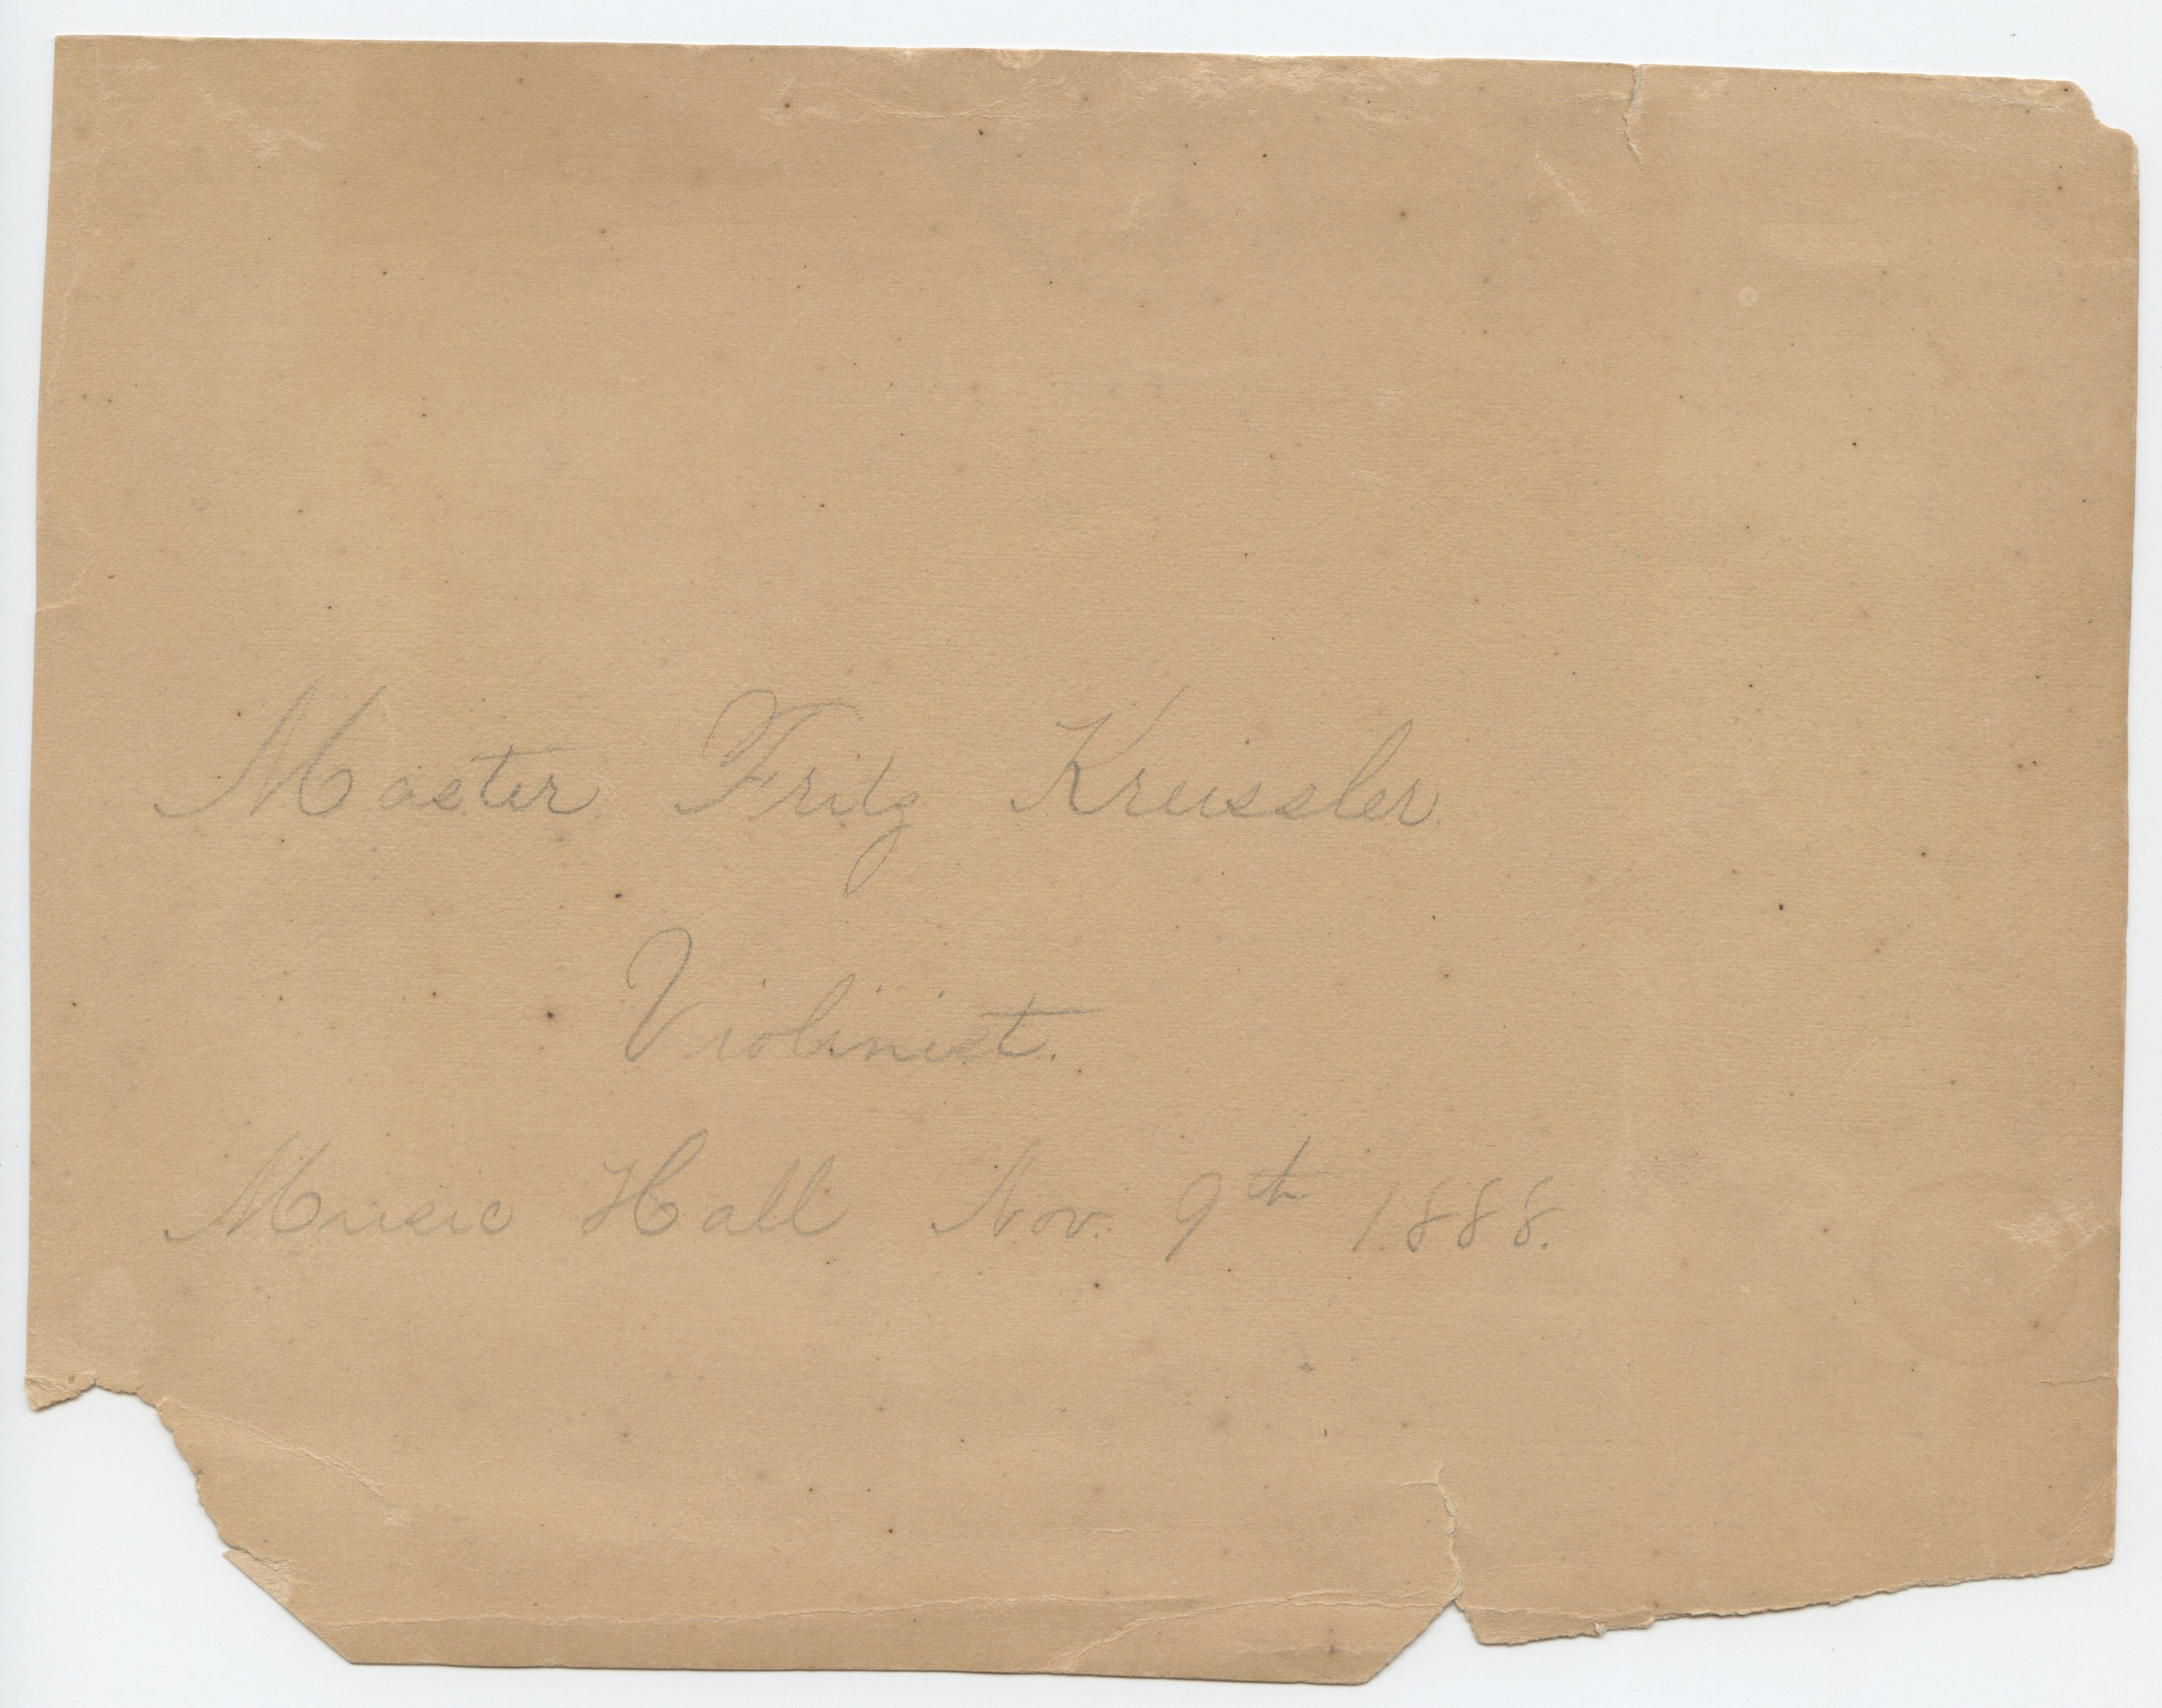 Master Fritz Kreissler
Violinist.
Music Hall Nov. 9th 1888.